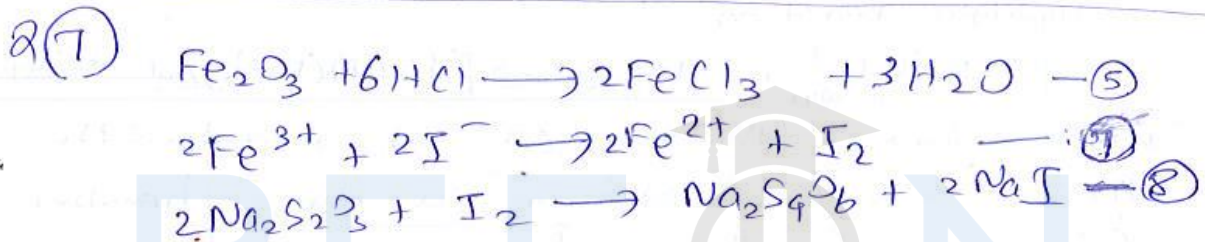 Q⑦ Fe₂O₃ + 6HCl ⟶ 2FeCl₃ + 3H₂O —⑤
2Fe³⁺ + 2I⁻ ⟶ 2Fe²⁺ + I₂ —⑦
2Na₂S₂O₃ + I₂ ⟶ Na₂S₄O₆ + 2NaI —⑧